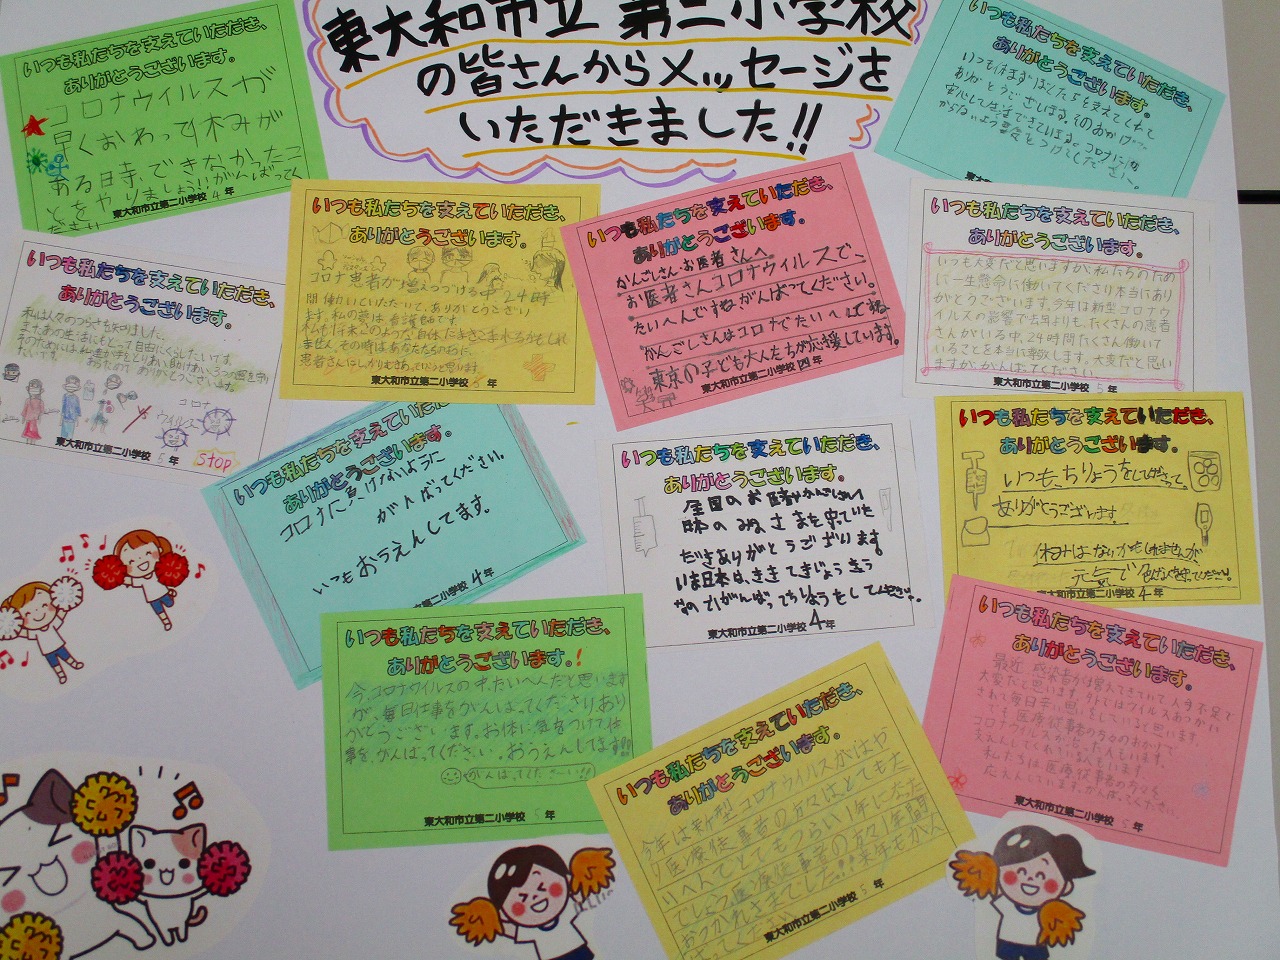 東大和市立 第二小学校
の皆さんからメッセージを
いただきました!!
いつも私たちを支えていただき、
ありがとうございます。
コロナウイルスが
早くおわって休みが
ある日時、できなかったこ
とをやりましょう!!がんばってく
ださい
東大和市立第二小学校 4年
いつも私たちを支えていただき、
ありがとうございます。
いつも休まずぼくたちを支えてくれて
ありがとうございます。そのおかげで
安心して生活できている。コロナに
からないよう気をつけてください。
いつも私たちを支えていただき、
ありがとうございます。
コロナ患者が増えつづける中24時
間働いていただいて、ありがとうござい
ます。私の夢は看護師です。
私も将来このような自体にまきこまれるかもしれ
ません。その時はあなたたちのように、
患者さんにしっかりむきあっていこうと思います。
東大和市立第二小学校 5年
いつも私たちを支えていただき、
ありがとうございます。
かんごしさん・お医者さんへ
お医者さんコロナウイルスで、
たいへんですねがんばってください。
かんごしさんはコロナでたいへんですね
東京の子ども大人たちが応援しています。
東大和市立第二小学校 四年
いつも私たちを支えていただき、
ありがとうございます。
いつも大変だと思いますが、私たちのため
に一生懸命に働いてくださり本当にあり
がとうございます。今年は新型コロナウ
イルスの影響で去年よりも、たくさんの患者
さんがいる中、24時間たくさん働いて
いることを本当に感謝します。大変だと思い
ますが、がんばってください。
東大和市立第二小学校 5年
いつも私たちを支えていただき、
ありがとうございます。
私は人々のつらさを知りました。
またあの生活にもどって自由にくらしたいです。
コロナ
ウイルス
STOP
東大和市立第二小学校 5年
いつも私たちを支えていただき、
ありがとうございます。
コロナに負けないように
がんばってください。
いつもおうえんしてます。
立第二小学校 4年
いつも私たちを支えていただき、
ありがとうございます。
全国のお医者やかんごし
ただきありがとうございます。
東大和市立第二小学校 4年
いつも私たちを支えていただき、
ありがとうございます。
いつも、ちりょうをしてくださって。
ありがとうございます。
休みはないかもしれませんが、
元気で
東大和市立第二小学校 4年
いつも私たちを支えていただき、
ありがとうございます。!
今、コロナウイルスの中、たいへんだと思います
が、毎日仕事をがんばってくださりあり
がとうございます。お体に気をつけて仕
事を、がんばってください。おうえんしてます!!
がんばってくださーい!!
東大和市立第二小学校 5年
いつも私たちを支えていただき、
ありがとうございます。
今年は新型コロナウイルスがはや
り医療従事者の方々はとてもた
いへんでとてもつらい1年になった
でしょう。医療従事者の方々1年間
おつかれさまでした!!来年もがん
ばってください
東大和市立第二小学校 5年
いつも私たちを支えていただき、
ありがとうございます。
最近、感染者が増えてきていて人手不足で
大変だと思います。
コロナウイルス
私たちは医療従事者の方々を
応えんしています。がんばってください。
東大和市立第二小学校 5年